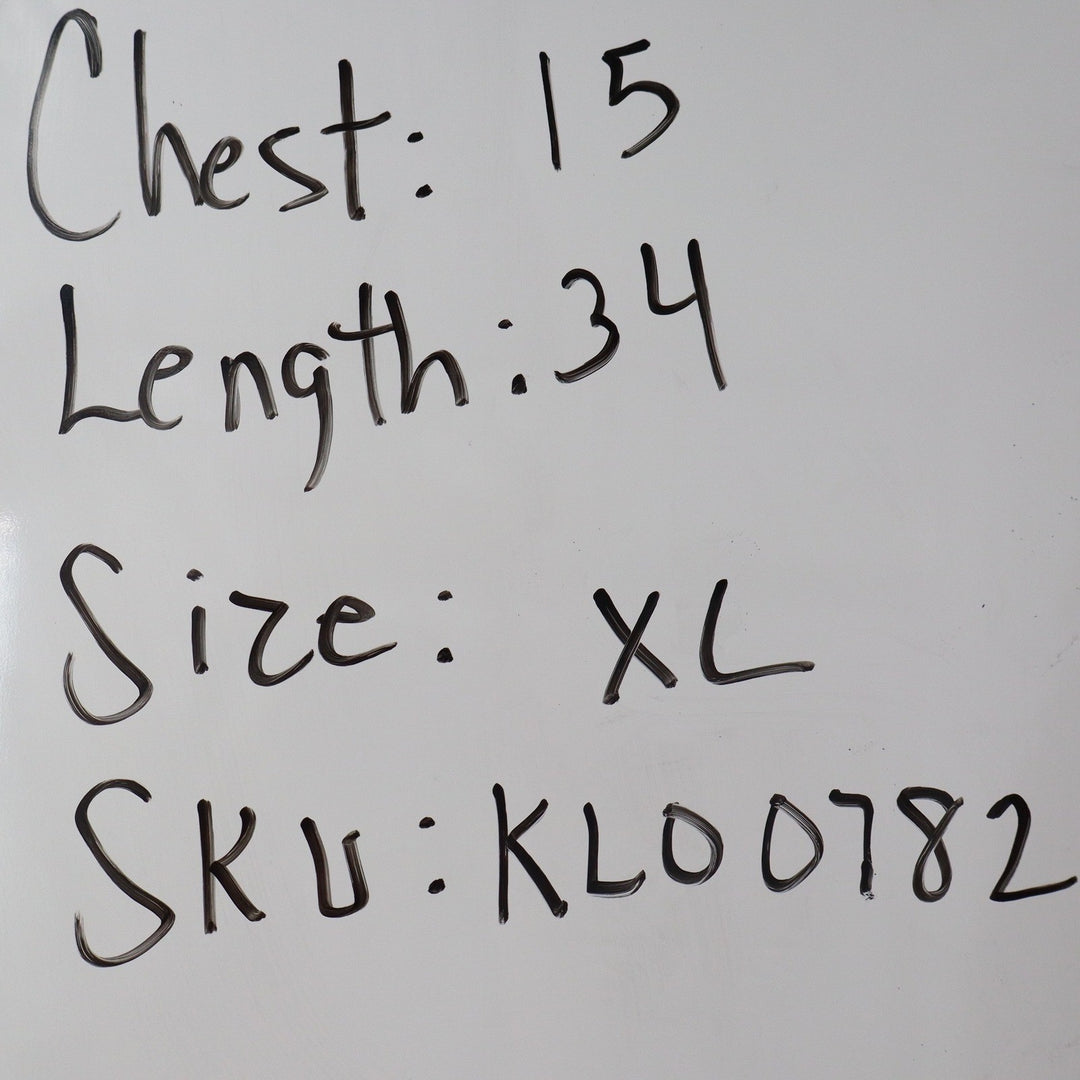 Chest: 15
Length: 34
Size: XL
SKU: KL00782